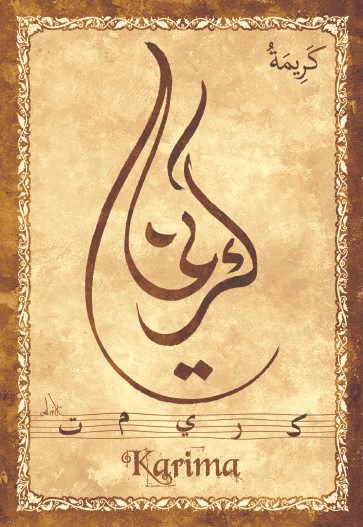 كَرِيمَةُ
كريمة
ك ر ي م ت
Karima